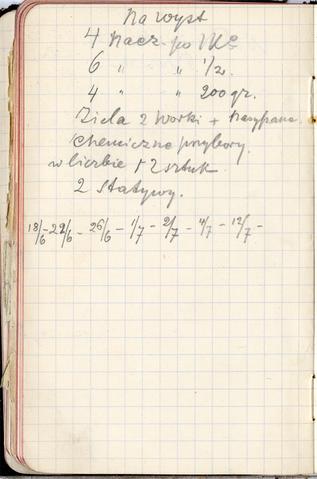 Na wyst
4 nacz. po 1 Ko
6 " " 1/2.
4 " " 200 gr.
Ziela 2 worki + nasypane
Chemiczne przybory.
w liczbie 12 sztuk
2 statywy.
18/6 - 22/6 - 26/6 - 1/7 - 2/7 - 4/7 - 12/7 -